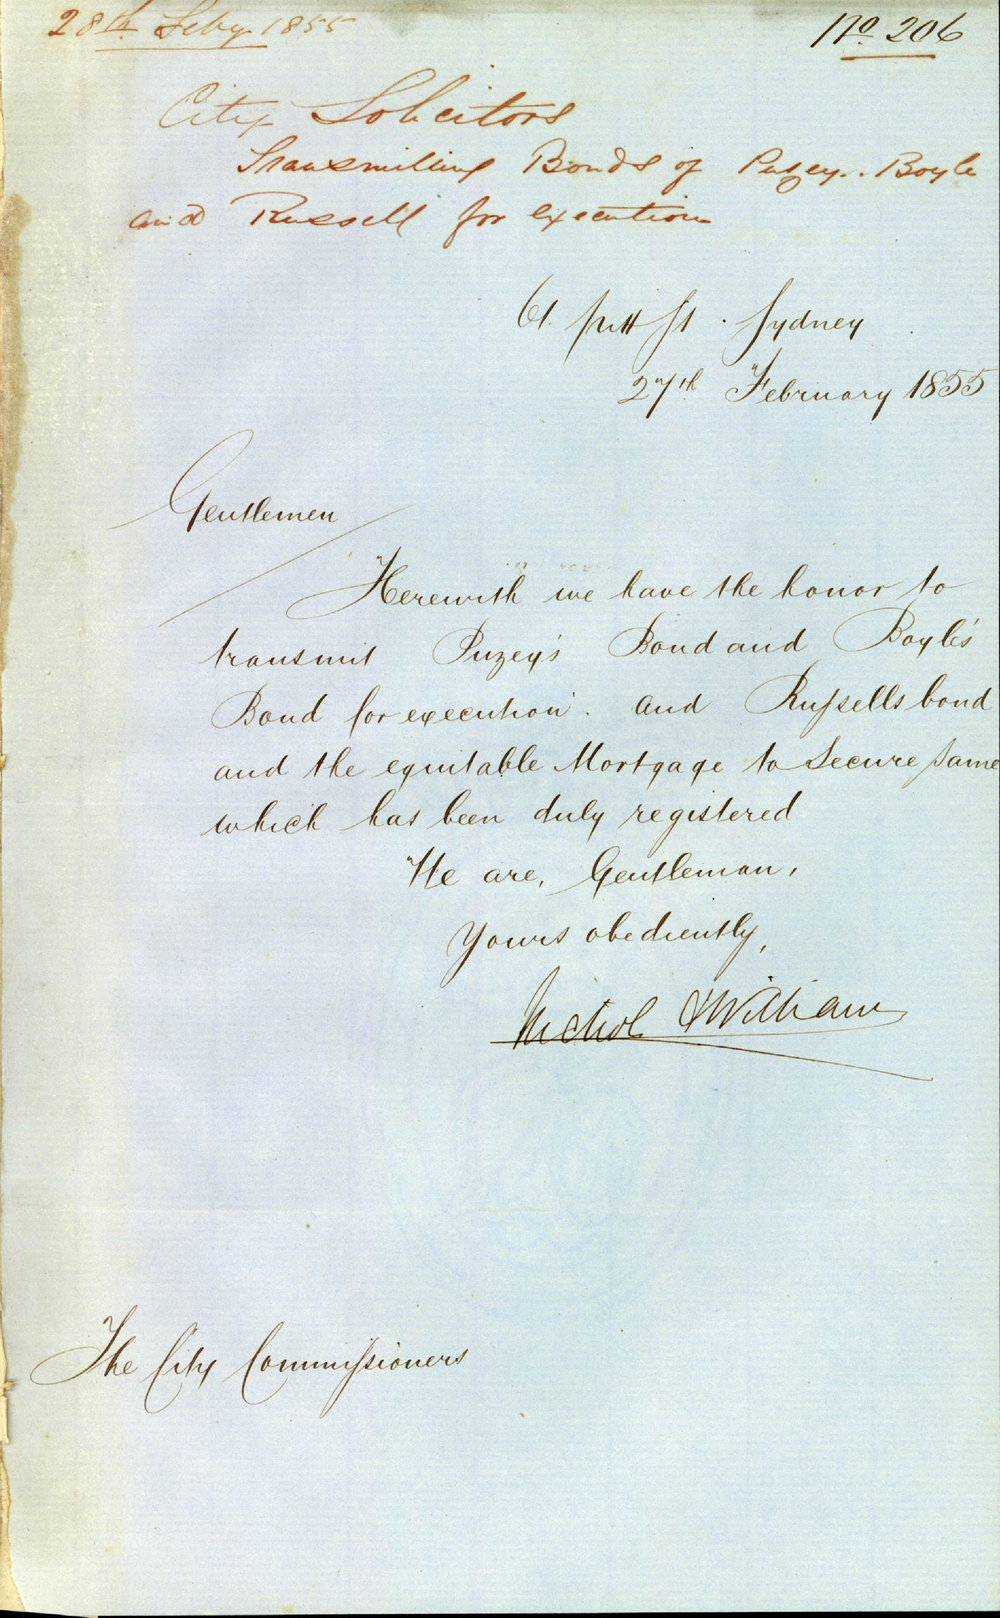 28th Feby 1855
No 206
City Solicitors
Transmitting Bonds of Puzey.. Boyle
and Russell for execution
61. Pitt St. Sydney
27th February 1855
Gentlemen
Herewith we have the honor to
transmit Puzey's Bond and Boyle's
Bond for execution. and Russells bond
and the equitable Mortgage to secure same
which has been duly registered
We are, Gentleman,
Yours obediently,
Nichol & Williams
The City Commissioners